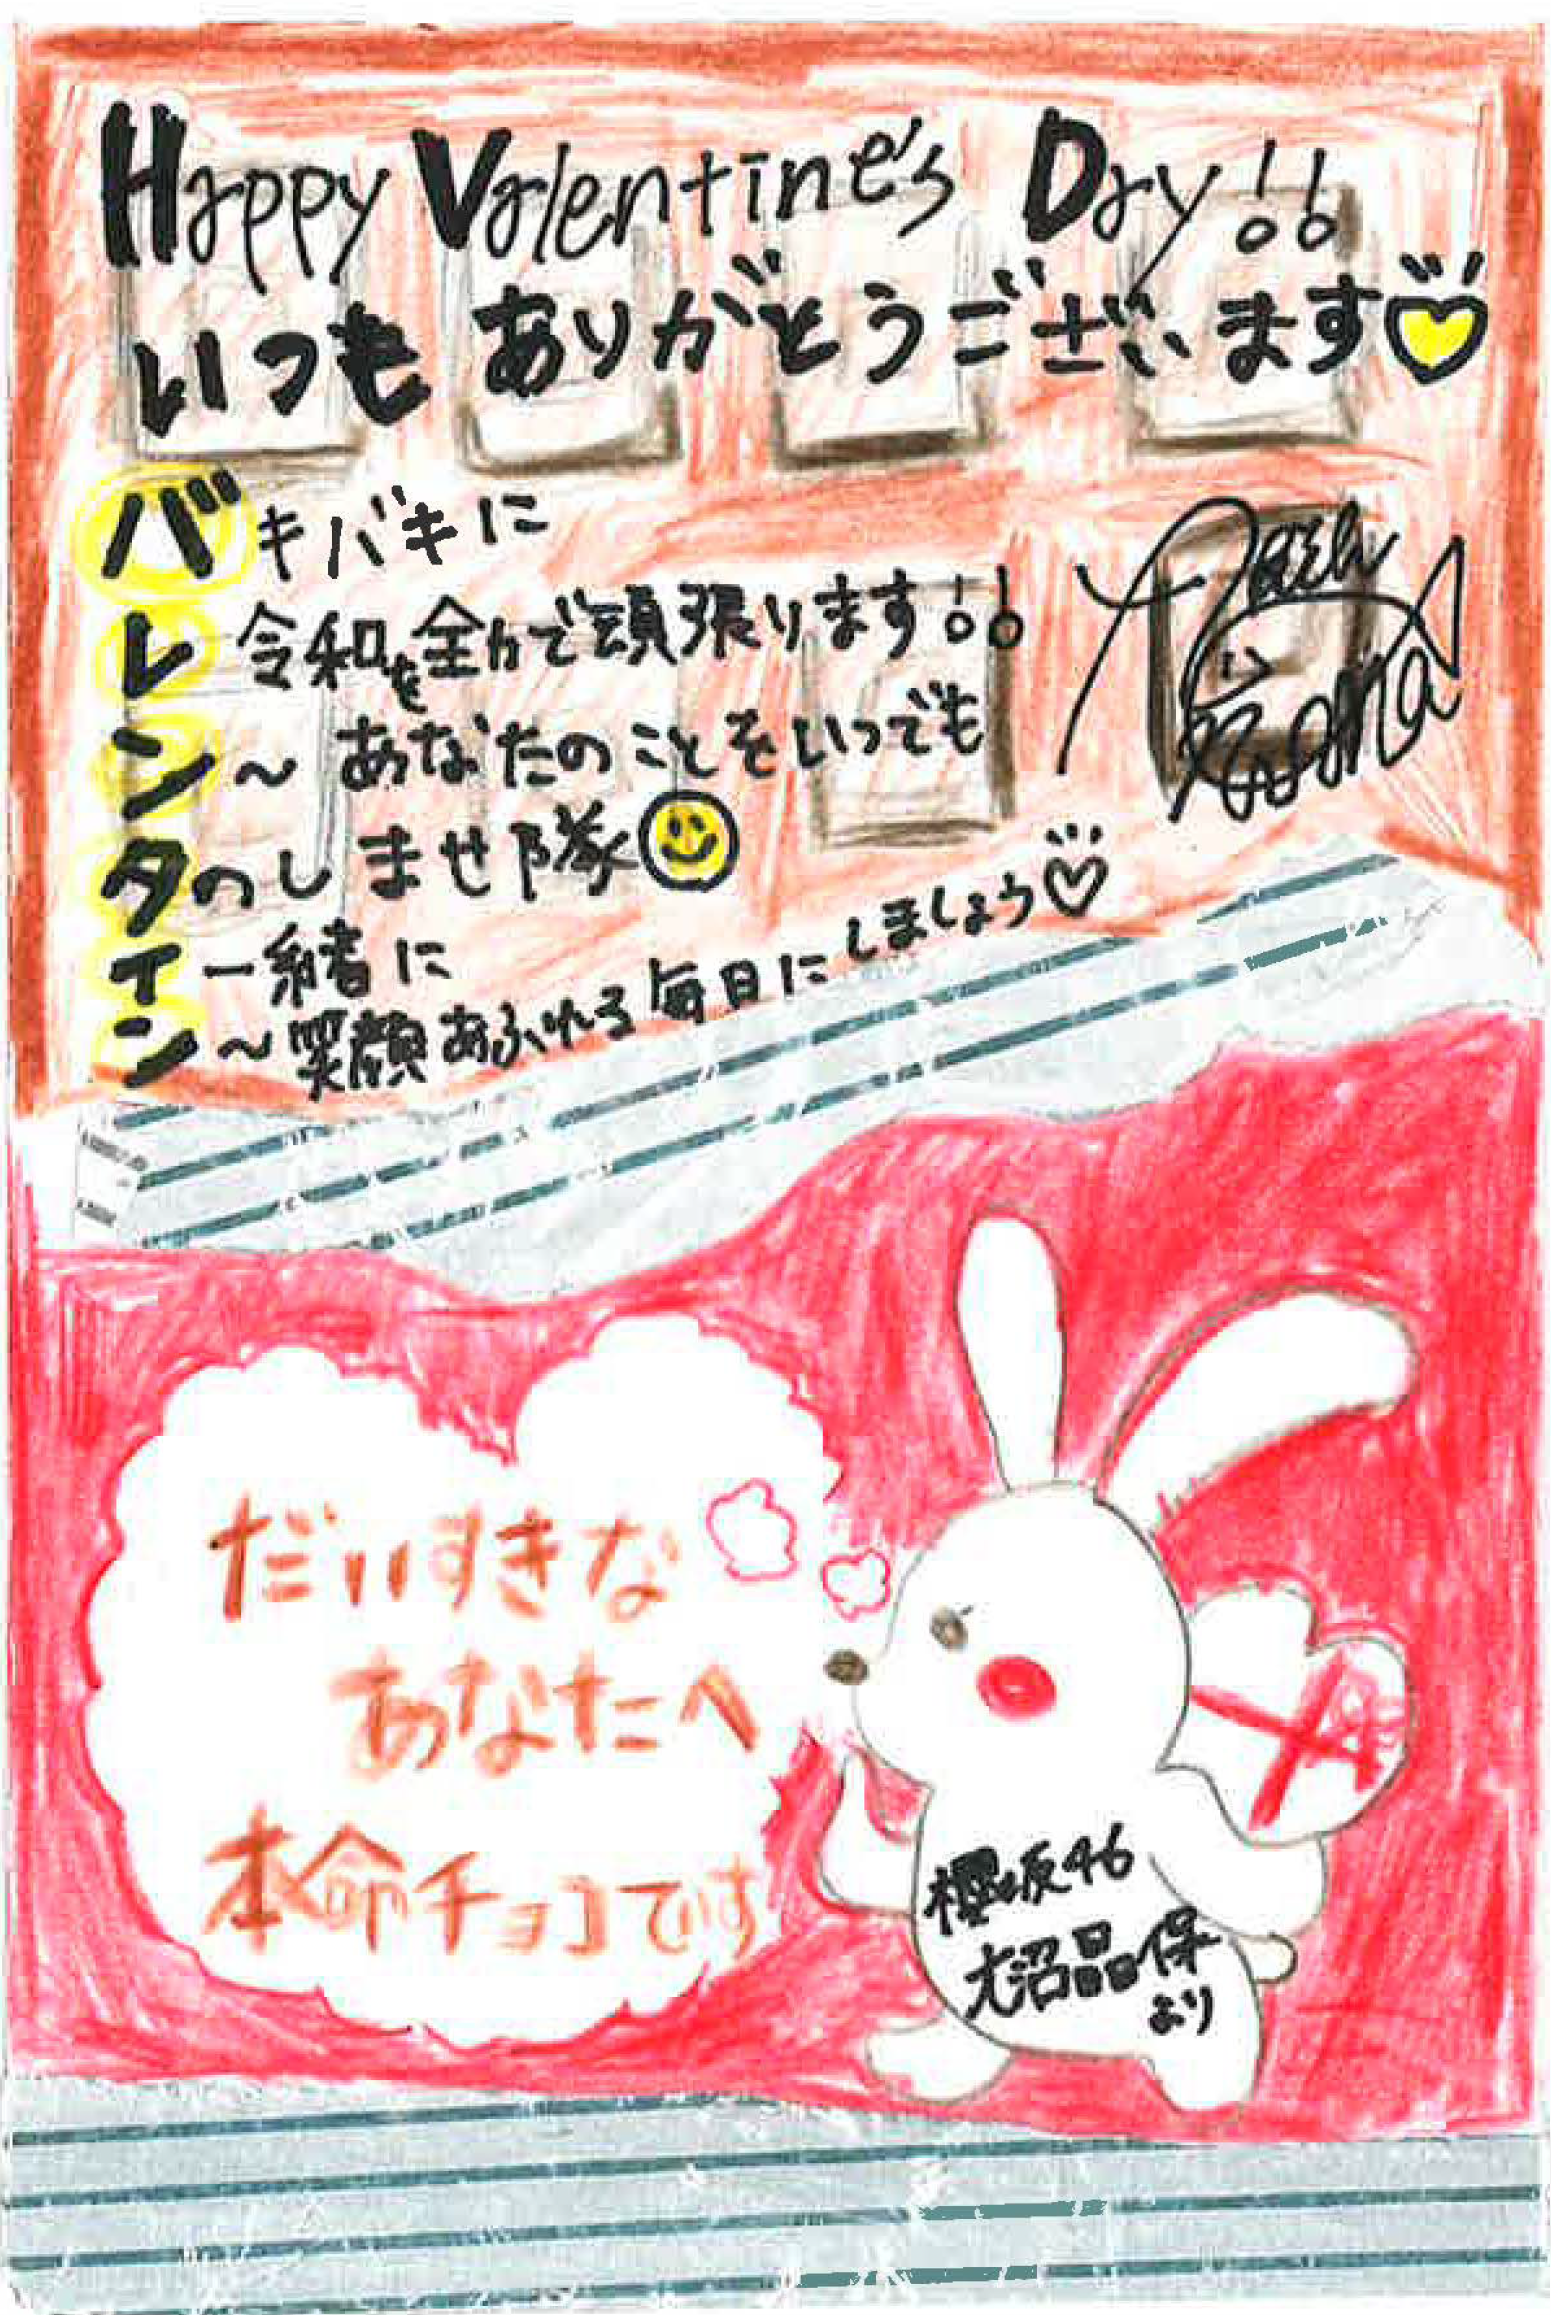 Happy Valentine's Day!!
いつもありがとうございます♡
バキバキに
レ 令和を全力で頑張ります!!
ン～あなたのことをいつでも
タのしませ隊
イ一緒に
ン～笑顔あふれる毎日にしましょう♡
だいすきな
あなたへ
本命チョコです
櫻坂46
大沼晶保
より